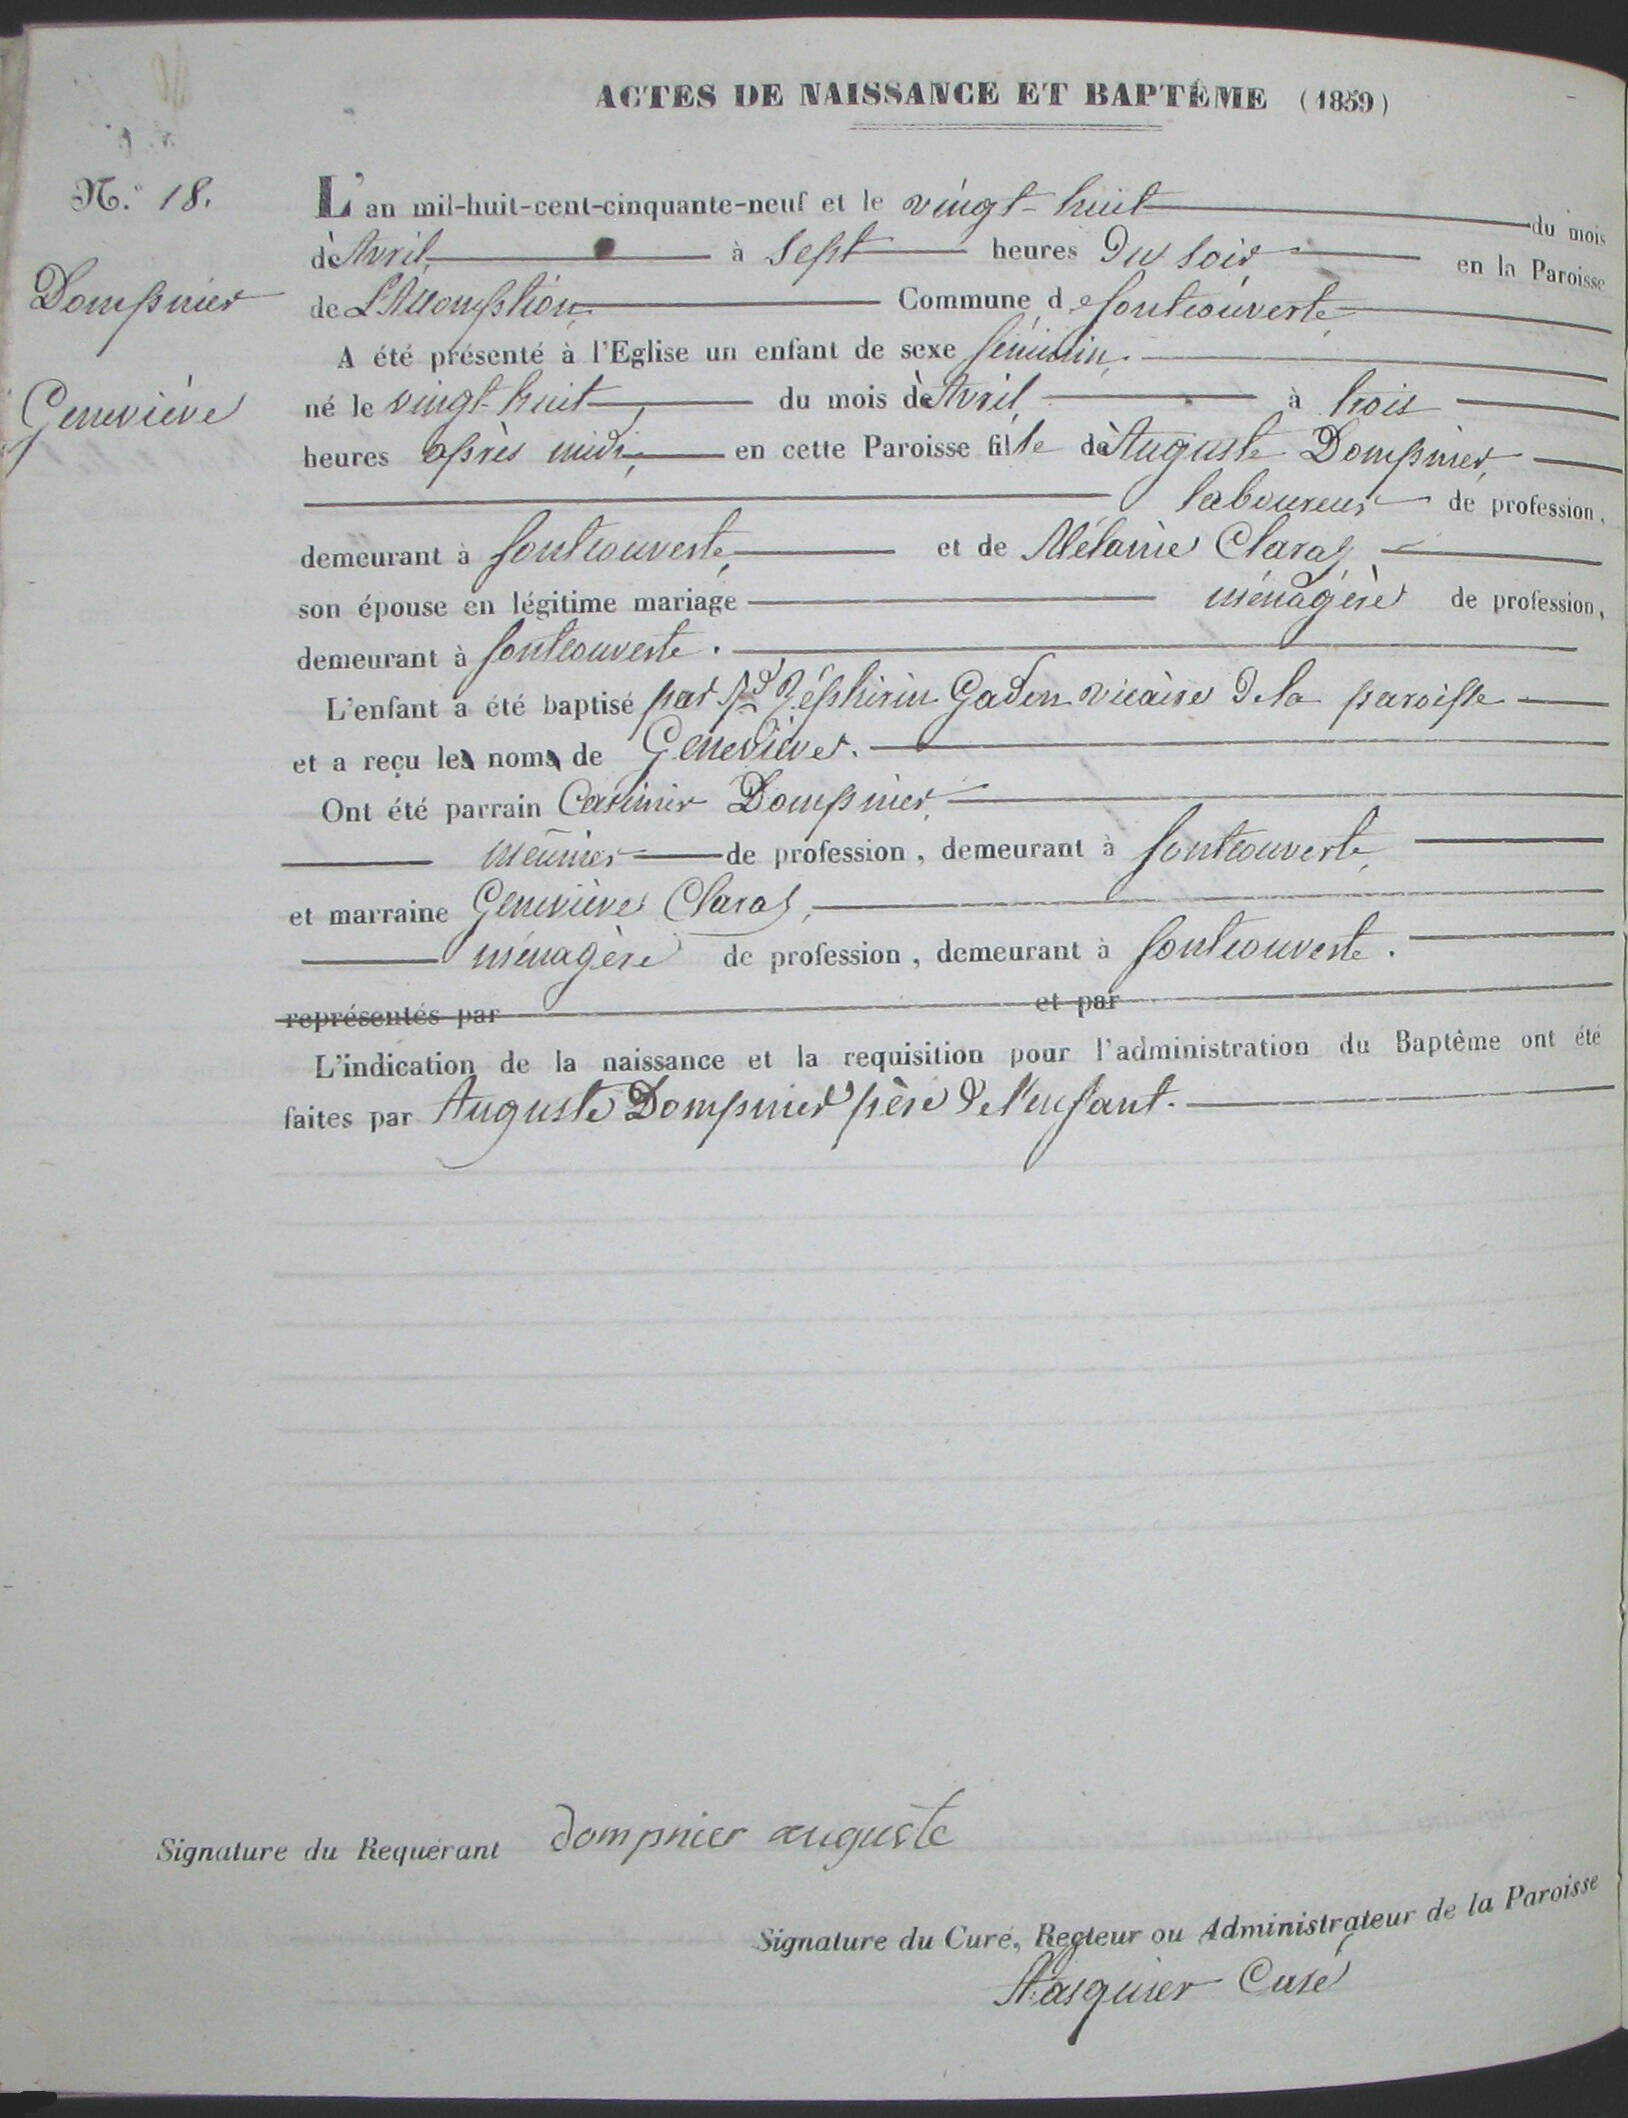 ACTES DE NAISSANCE ET BAPTÊME (1859)
N.° 18.
L'an mil-huit-cent-cinquante-neuf et le vingt-huit du mois
d'Avril, à sept heures du soir en la Paroisse
Dompnier
de L'Assomption, Commune de fontcouverte,
A été présenté à l'Eglise un enfant de sexe féminin,
Geneviève
né le vingt-huit du mois d'Avril, à trois
heures après midi, en cette Paroisse fille d'Auguste Dompnier,
laboureur de profession,
demeurant à fontcouverte, et de Mélanie Claraz
son épouse en légitime mariage ménagère de profession,
demeurant à fontcouverte.
L'enfant a été baptisé par Rd Zéphirin Gaden vicaire de la paroisse
et a reçu le nom de Geneviève.
Ont été parrain Casimir Dompnier,
meunier de profession, demeurant à fontcouverte,
et marraine Geneviève Claraz,
ménagère de profession, demeurant à fontcouverte.
représentés par et par
L'indication de la naissance et la requisition pour l'administration du Baptême ont été
faites par Auguste Dompnier père de l'enfant.
Signature du Requérant dompnier auguste
Signature du Curé, Recteur ou Administrateur de la Paroisse
Curé